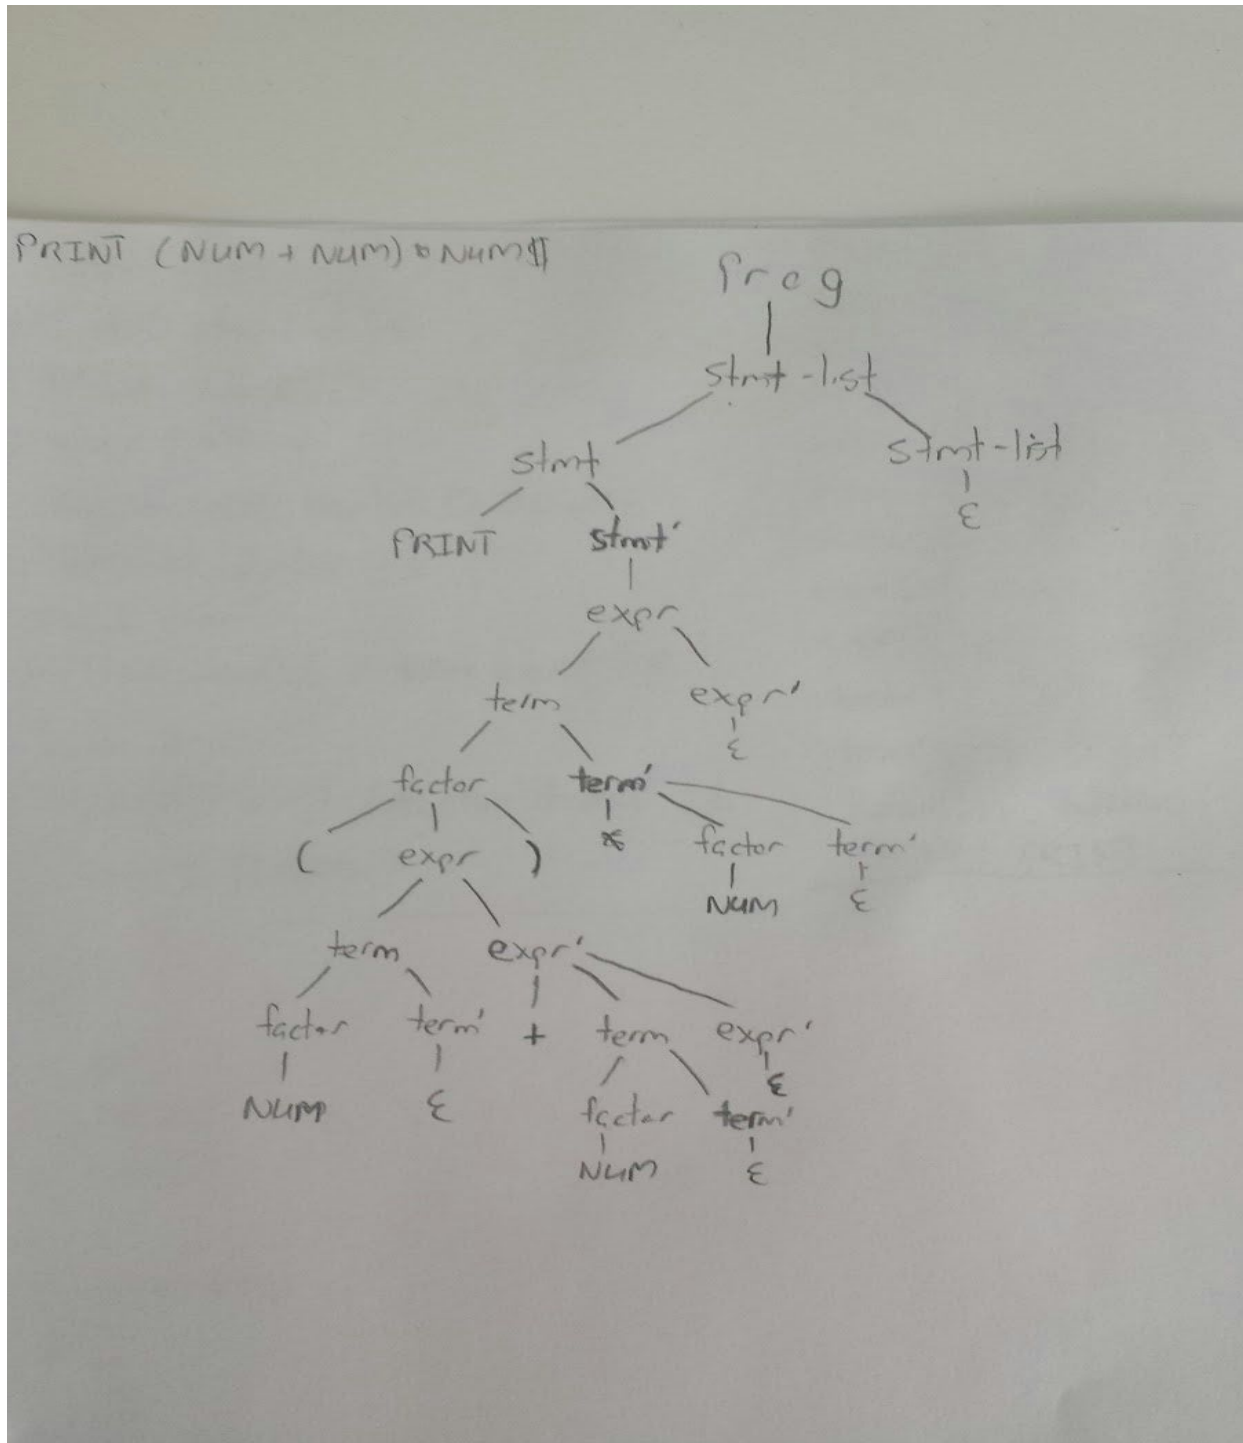 PRINT (NUM + NUM) * NUM$
Prog
stmt-list
stmt stmt-list
PRINT stmt' ε
expr
term expr'
ε
factor term'
( expr ) * factor term'
NUM ε
term expr'
factor term' + term expr'
ε
NUM ε factor term'
NUM ε